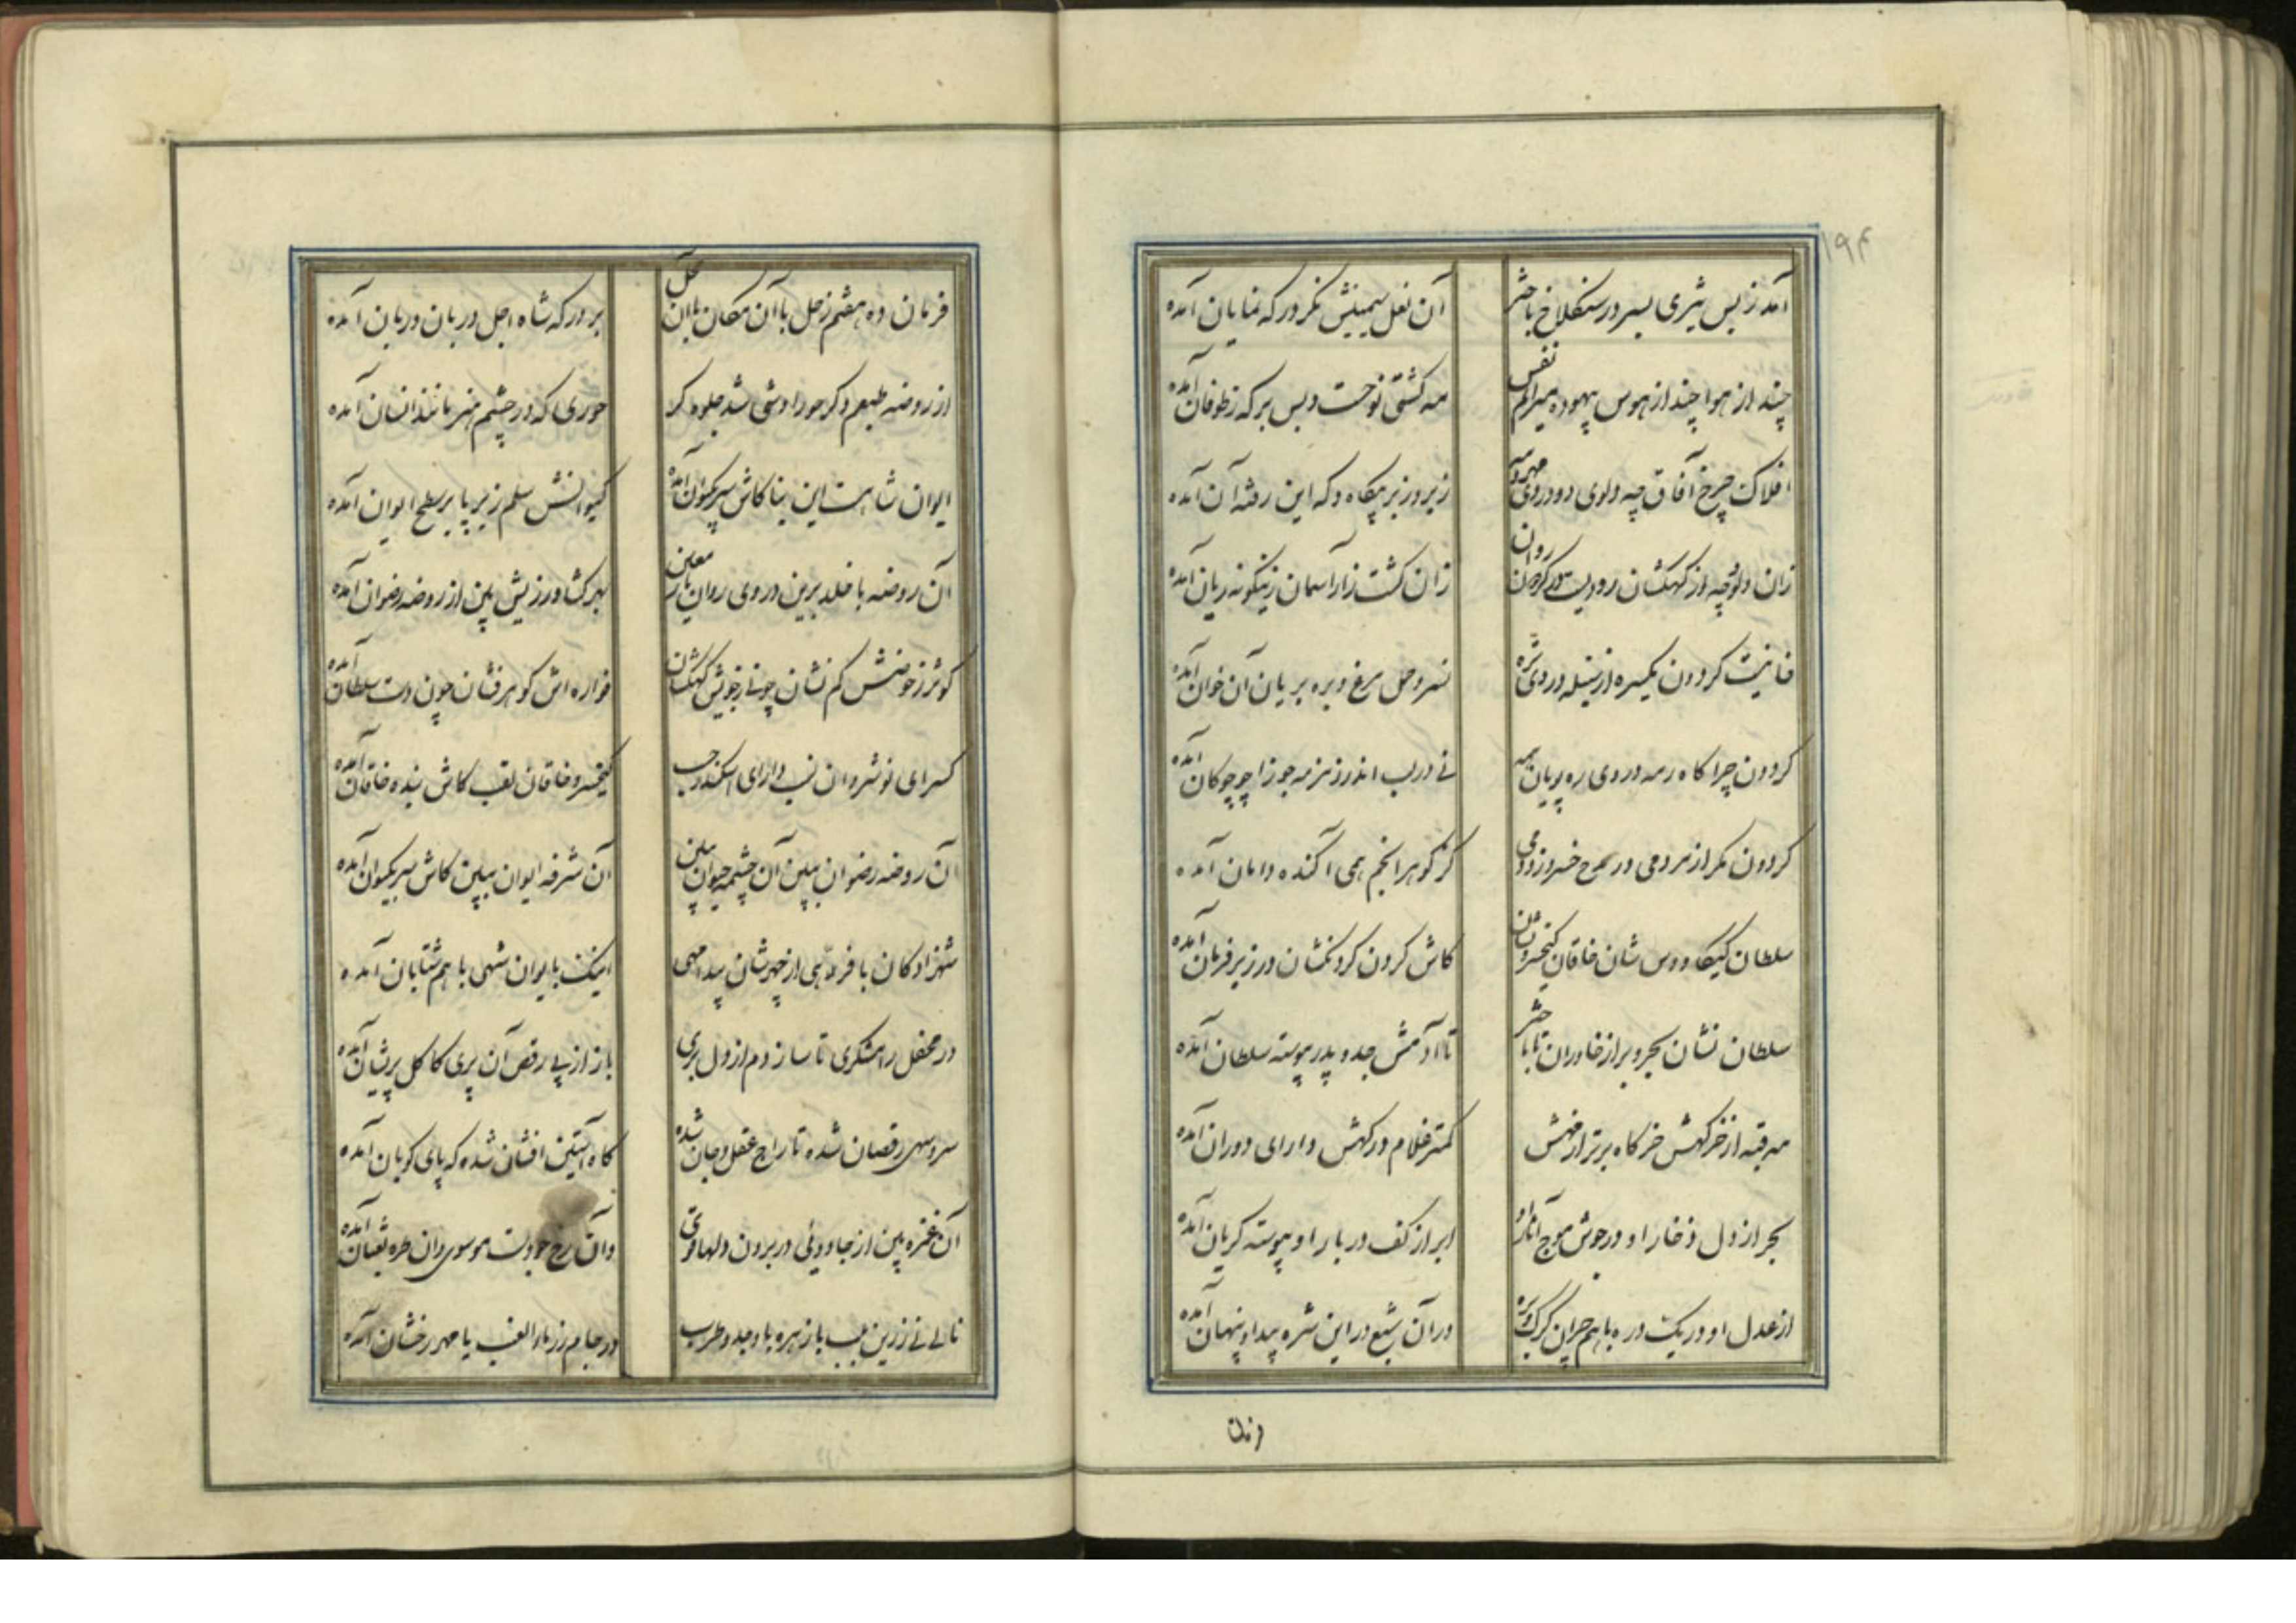 ۱۹۴
آمد ز پس شیری بسر در سنگلاخ باختر
آن نعل سیمینش نگر در که نمایان آمده
چند از هوا چند از هوس بیهوده میرانم نفس
مه کشتی نوحست و بس بر که ز طوفان آمده
افلاک چرخ آفاق چه دلوی دو در وی مهر و مه
زیر و زبر بیگاه و گه این رفته آن آمده
زان دلو و چه وز کهکشان رودیست در گردون روان
زان کشت زار آسمان زینگونه ریان آمده
خانیست گردون یکسره از سنبله در وی تره
نسر و حمل مرغ و بره بریان آن خوان آمده
گردون چراگاه رمه در وی ره پویان همه
نی در لب اندر زمزمه جوزا چو چوکان آمده
گردون مگر از مردمی در مدح خسرو زد دمی
کز گوهر انجم همی آکنده دامان آمده
سلطان کیکاوس شان خاقان کیخسرو نشان
کاش گردن گردنکشان در زیر فرمان آمده
سلطان نشان بحر و بر از خاوران تا باختر
تا آدمش جد و پدر پیوسته سلطان آمده
مه قبه از خرگهش خرگاه برتر از مهش
کمتر غلام درگهش دارای دوران آمده
بحر از دل ذخار او در جوش موج آثار او
ابر از کف دربار او پیوسته گریان آمده
از عدل او در یک دره باهم چران گرگ و بره
در آن شبع در این شره پیدا و پنهان آمده
فرمان
فرمان ده هفتم زحل با آن مکان با آن محل
بر درگه شاه اجل دربان دربان آمده
از روضه طبعم دگر حورا وشی شد جلوه گر
حوری که در چشم هنر مانند انسان آمده
ایوان شاهست این بنا کاش سر بکیوان آمده
کیوانش سلم زیر پا بر سطح ایوان آمده
آن روضه با خلد برین در وی روان ماء معین
بهر کشاورزیش بین از روضه رضوان آمده
کوثر ز حوضش کم نشان جوئی ز جویش کهکشان
فواره اش گوهر فشان چون دست سلطان آمده
کسرای نوشروان نسب دارای اسکندر حسب
کیخسرو خاقان لقب کاش بنده خاقان آمده
آن روضه رضوان ببین آن چشمه حیوان ببین
آن شرفه ایوان ببین کاش سر بکیوان آمده
شهزادگان با فرهی از چهرشان پیدا مهی
اینک بایوان شهی باهم شتابان آمده
در محفل رامشگری تا سازد دم از دل بری
باز از پی رقص آن پری کاکل پریشان آمده
سرو سهی رقصان شده تاراج عقل و جان شده
گاه آستین افشان شده گه پای کوبان آمده
آن غمزه بین از جادوئی در بردن دلها قوی
وان رخ چو دست موسوی وان طره ثعبان آمده
نالی نی زرین بلب با زهره با وجد و طرب
در جام زر ماء العنب یا مهر رخشان آمده